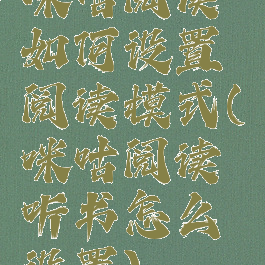 咪咕阅读
如何设置
阅读模式(
咪咕阅读
听书怎么
设置)